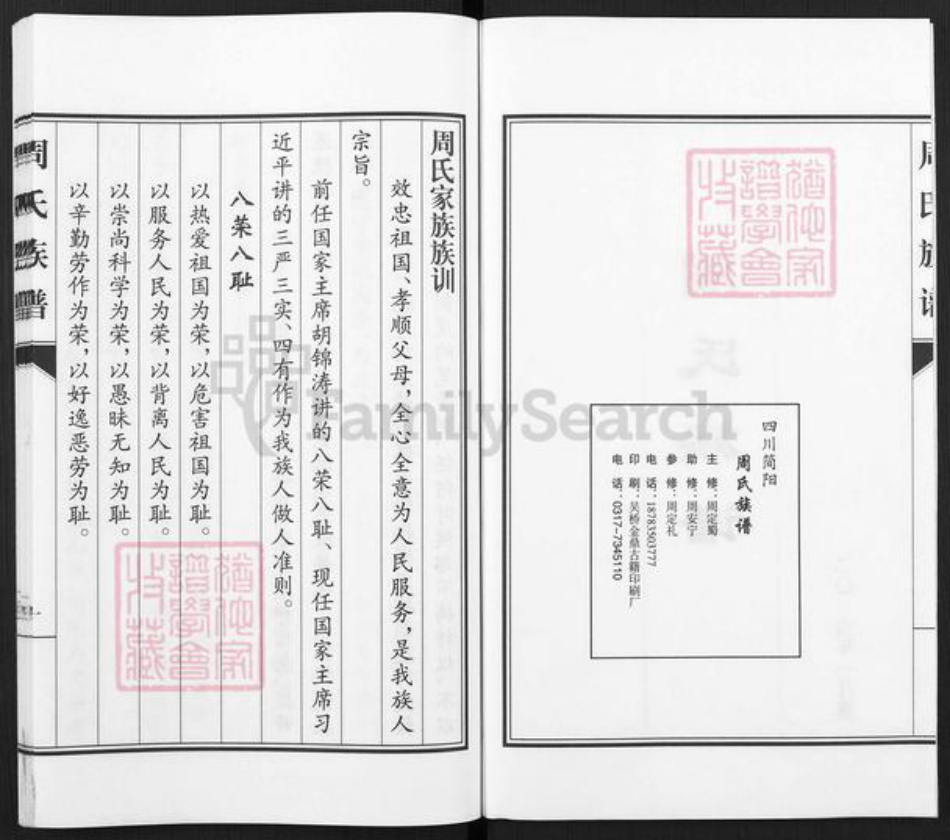 四川简阳
周氏族谱
主 修：周定蜀
助 修：周安宁
参 修：周定礼
电 话：18783503777
印 刷：吴桥金鼎古籍印刷厂
电 话：0317-7345110
周氏家族族训
效忠祖国、孝顺父母，全心全意为人民服务，是我族人
宗旨。
前任国家主席胡锦涛讲的八荣八耻、现任国家主席习
近平讲的三严三实、四有作为我族人做人准则。
八荣八耻
以热爱祖国为荣，以危害祖国为耻。
以服务人民为荣，以背离人民为耻。
以崇尚科学为荣，以愚昧无知为耻。
以辛勤劳作为荣，以好逸恶劳为耻。
周氏族谱
FamilySearch